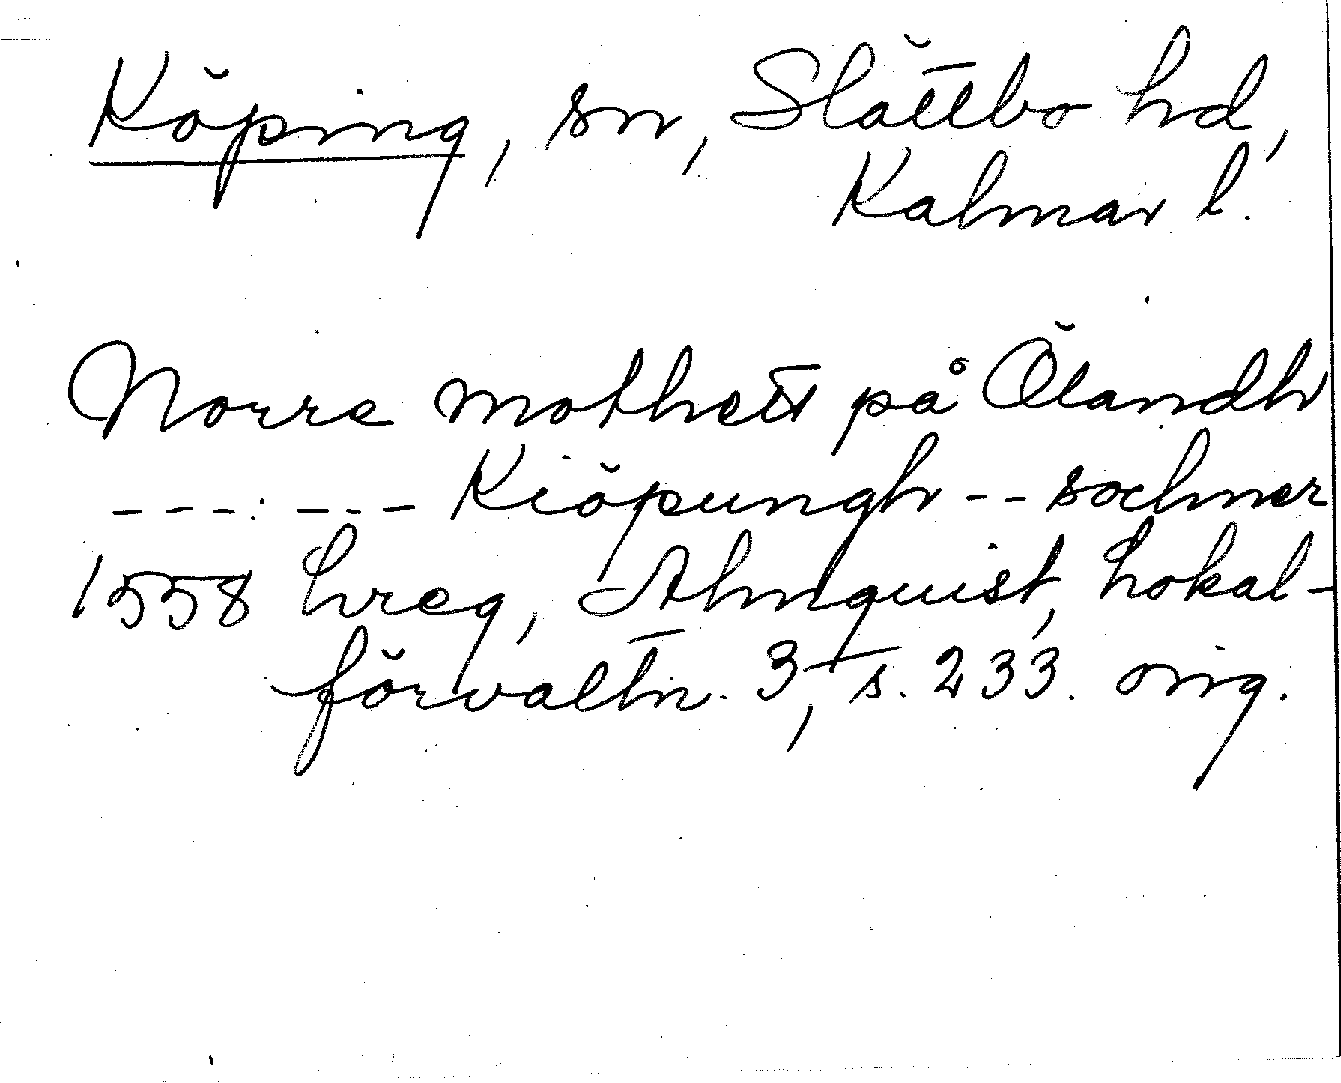 Köping, sn, Slättbo hd,
Kalmar l.
Norre mothett på Ölandh
- - - - - - Kiöpungh - - sochner
1558 hreg, Almquist, Lokal-
förvaltn. 3, s. 233. orig.